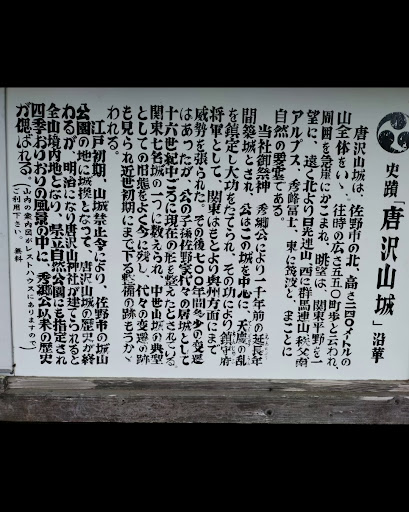 史蹟「唐沢山城」沿革
唐沢山城は、佐野市の北、高さ二四〇メートルの
山全体をいい、往時の広さ五五〇町歩と云われ、
周囲を急崖にかこまれ、眺望は、関東平野を一
望に、遠く北より日光連山、西に群馬連山、秩父、南
アルプス、秀峰富士、東に筑波と、まことに
自然の要害である。
当社御祭神 秀郷公により一千年前の延長年
間築城とされ、公はこの城を中心に、天慶の乱
を鎮定し大功をたてられ、その功により鎮守府
将軍として、関東はもとより奥州方面にまで
威勢を張られた。その後七〇〇年間多少の変遷
はあったが、公の子孫佐野家代々の居城として
十六世紀中ごろに現在の形を整えたとされている
関東七名城の一つに数えられ、中世山城の典型
としての旧態をよく今に残し、代々の変遷の跡
も見られ近世初期にまで下る整備の跡もうかが
われる。
江戸初期、山城禁止令により、佐野市の城山
公園の地に城移となって、唐沢山城の歴史が終
わるが、明治になり唐沢山神社が建てられると
全山境内地となり、県立自然公園にも指定され
四季おりおりの風景の中に、秀郷公以来の歴史
が偲ばれる。(山内の案内図がレストハウスにありますので)
ご利用下さい。 無料